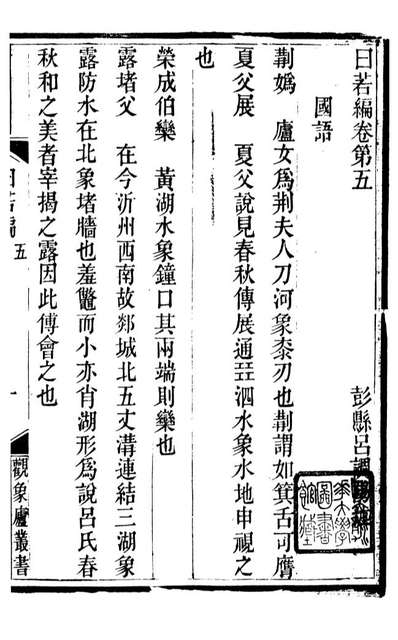 曰若編卷第五
彭縣呂調陽
國語
荆媯　廬女爲荆夫人刀河象桼刃也荆謂如箕舌可膺
夏父展　夏父說見春秋傳展通㠭泗水象水地申視之
也
榮成伯欒　黃湖水象鐘口其兩端則欒也
露堵父　在今沂州西南故郯城北五丈溝連結三湖象
露防水在北象堵牆也羞鼈而小亦肖湖形爲說呂氏春
秋和之美者宰揭之露因此傅會之也
五
一
觀象廬叢書